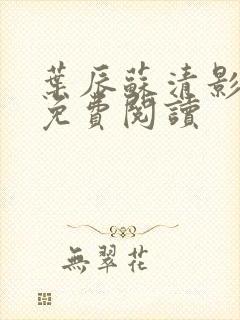 葉辰蘇清影
免費閱讀
無翠花